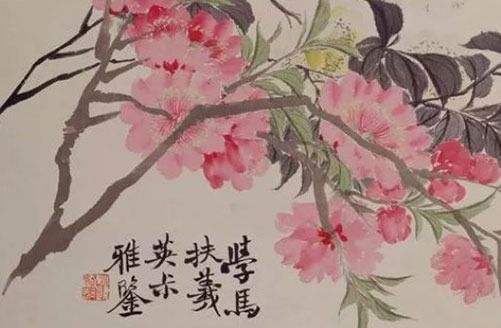 學馬
扶義
英
雅鑒